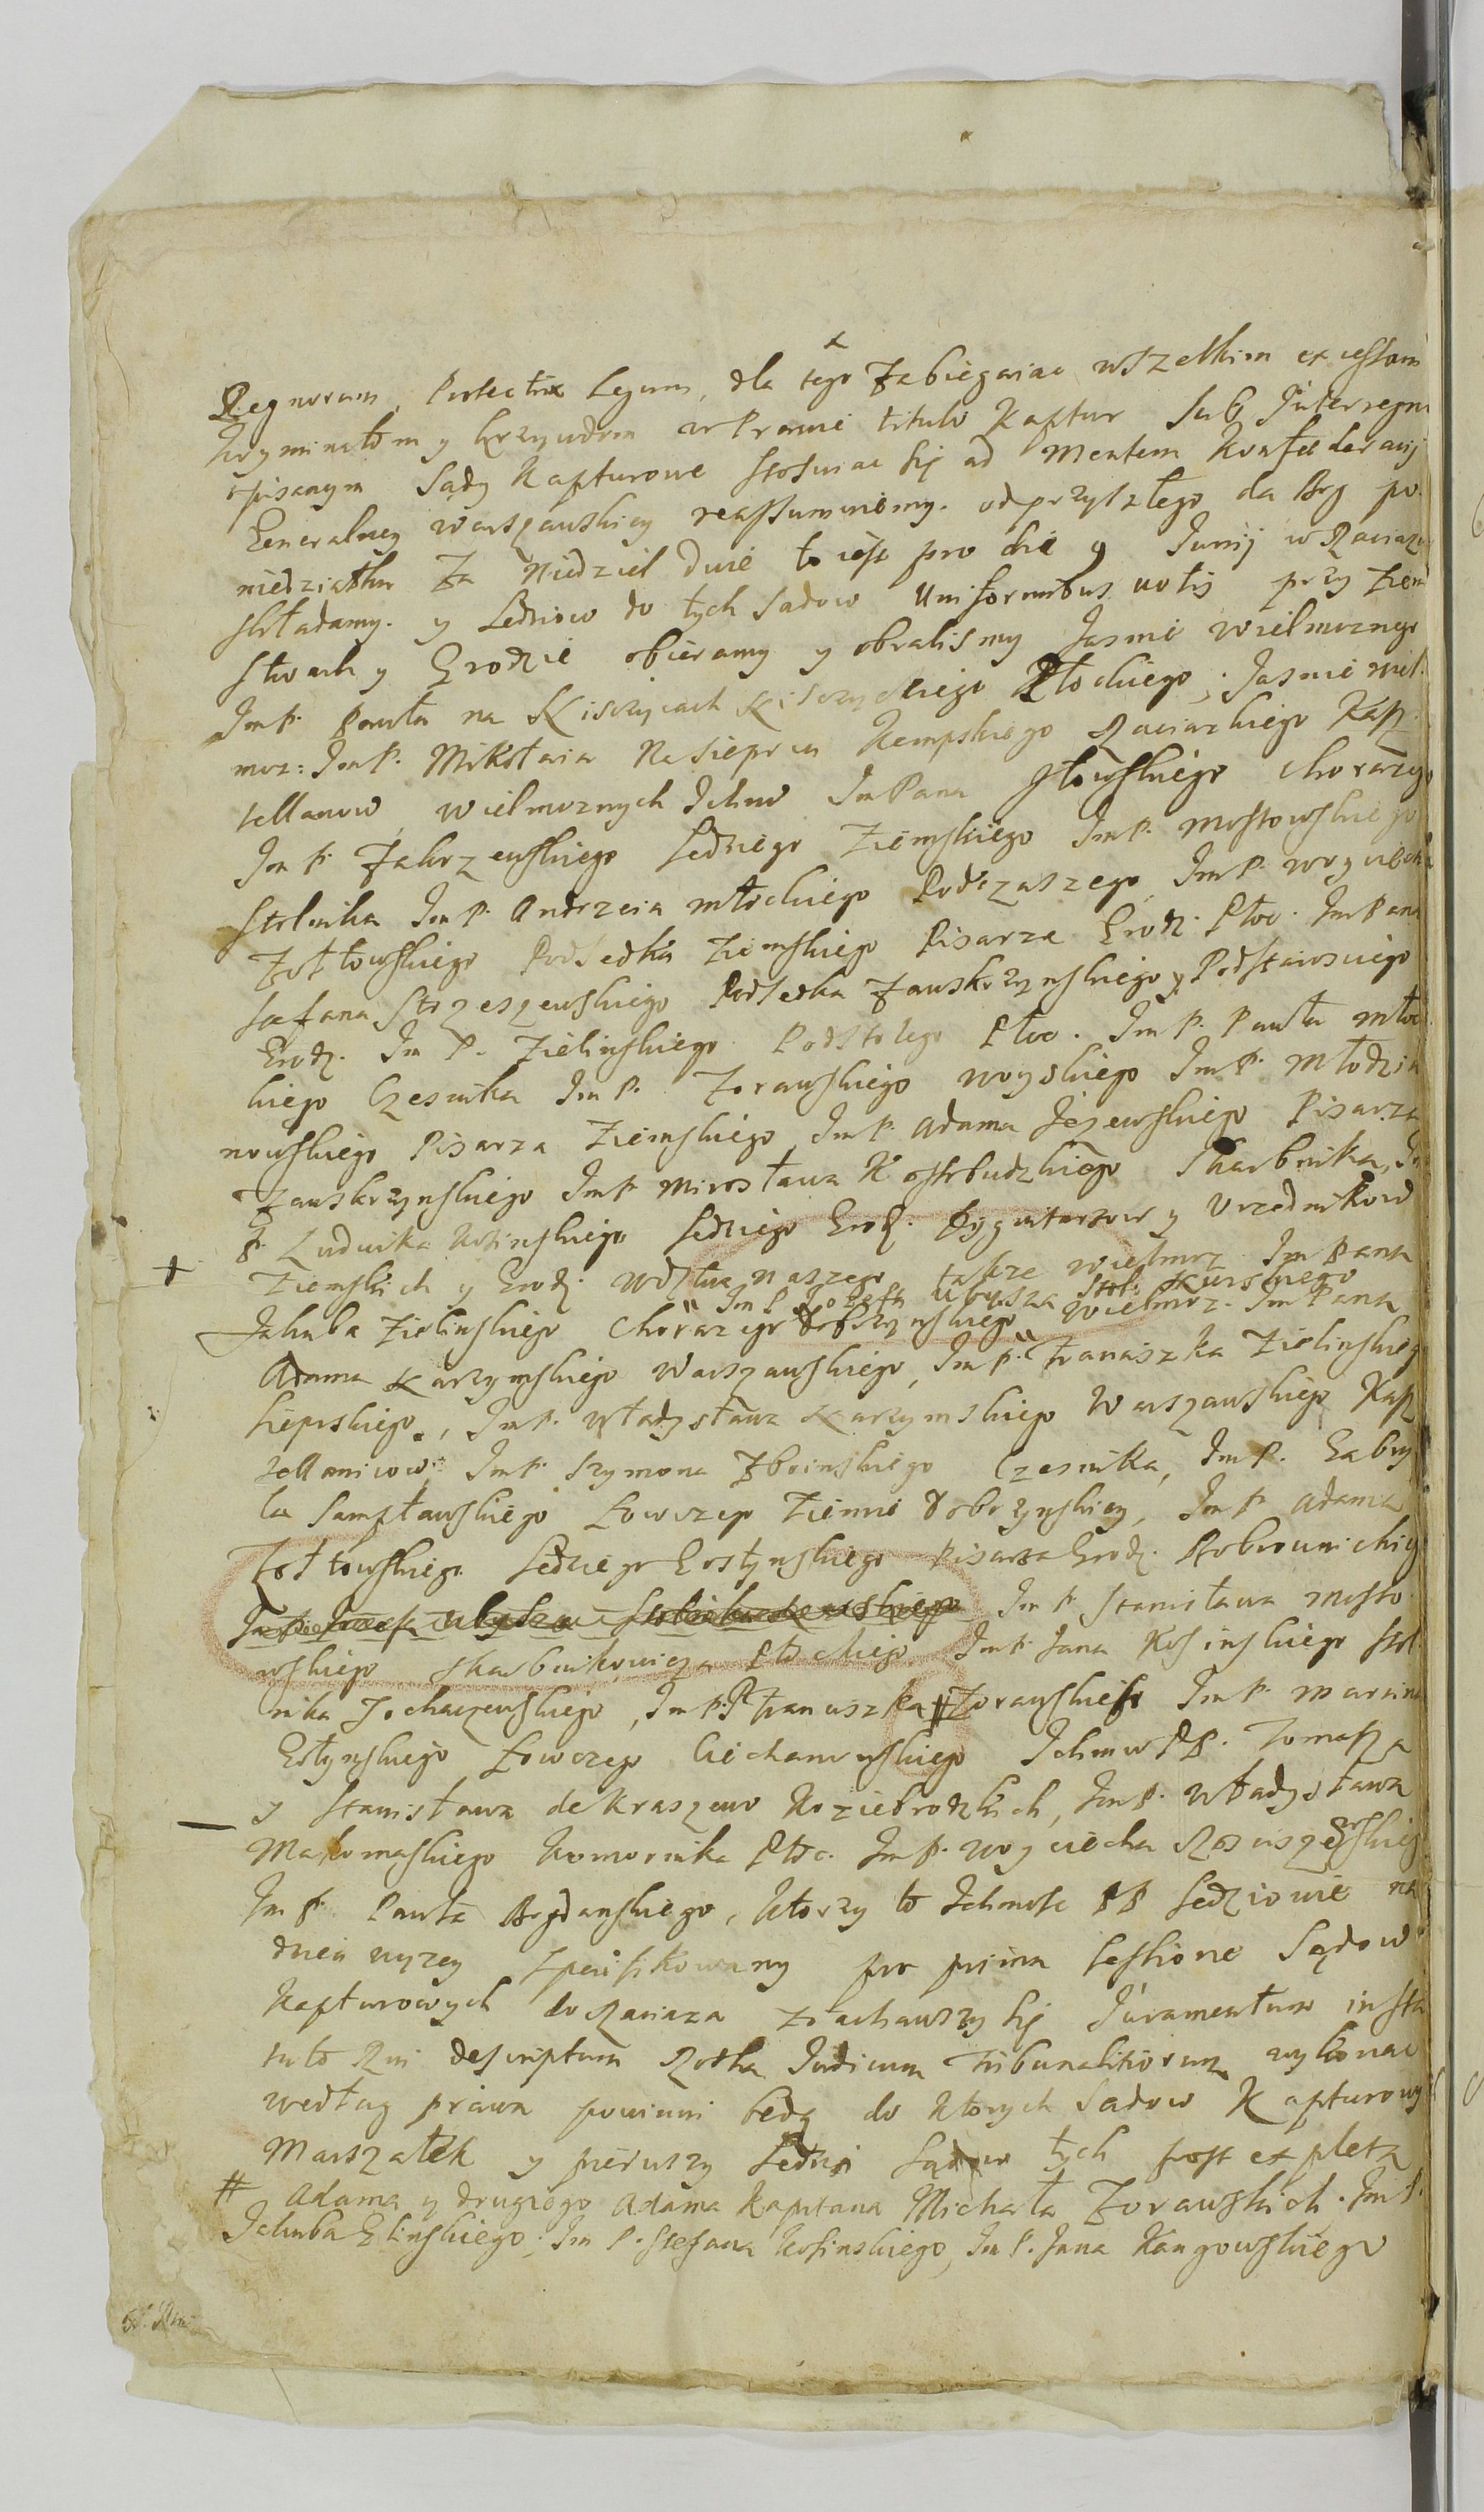 Regnorum, Protectrix Legum, dla tego Zabiegaiac wszelkim excessom
kryminałom y krzywdom w Prawie titulo Kaptur sub Interregni
opisanym Sądy Kapturowe stosuiac się ad Mentem Konfederacij
Generalney warszawskiey reassumuiemy. od przyszłego da Bog po
niedziałku Za Niedziel Dwie to iest pro die 9 Junij w Raciazu
składamy. y Sedziow do tych Sadow Uniformibus votis przy Ziem
stwach y Grodzie obieramy y obralismy Jasnie wielmoznego
Im P. Pawła na Kiscycach Płockiego, Jasnie wiel.
moz: Im P. Mikołaia Na Sieprcu Kempskiego Raciazkiego Kasz
tellanow, wielmoznych Ichmw Im Pana Głowskiego chorazego
Im P. Zakrzewskiego Sedziego Ziemskiego Im P. Mostowskiego
Stolnika Im P. Andrzeia Młockiego Podczaszego, Im P. woyciecha
Zołtowskiego Podsedka Ziemskiego Pisarza Grodz. Płoc. Im Pana
Stefana Strzeszewskiego Podsedka Zawskrzynskiego y Podstarosciego
Grodz. Im P. Zielinskiego Podstolego Płoc. Im P. Pawła Młoc
kiego Czesnika Im P. Zorawskiego woyskiego Im P. Młodzia
nowskiego Pisarza Ziemskiego, Im P. Adama Jezewskiego Pisarza
Zawskrzynskiego Im P. Mirosława Kossobudzkiego Skarbnika, Im
P. Ludwika Kosinskiego Sedziego Grodz. Dygnitarzow y Vrzednikow
+ Ziemskich y Grodz. wdstwa naszego także wielmoz. Im Pana
Im P. Jozefa Ubysza Stol.
Jakuba Zielinskiego Chorazego Dobrzynskiego wielmoz. Im Pana
Adama Karzymskiego Warszawskiego, Im P. Franciszka Zielinskiego
Sieprskiego, Im P. Władysława Karzymskiego Warszawskiego Kasz
tellanicow, Im P. Szymona Zboinskiego Czesnika, Im P. Gabry
la Sampławskiego Łowczego Ziemie Dobrzynskiey, Im P. Adama
Zołtowskiego Sedziego Gostynskiego Pisarza Grodz. Bobrownickiego
Im P. Jozefa Ubysza Im P. Stanisława Mosto
wskiego Skarbnikowicza Płockiego Im P. Jana Kosinskiego Stol
nika Sochaczewskiego, Im P. Franciszka # Zorawskich Im P. Marcina
Głynskiego Łowczego Ciechanowskiego Ichmw PP. Tomasza
— y Stanisława de Kraszewo Koziebrodzkich, Im P. Władysława
Makomaskiego Komornika Płoc. Im P. woyciecha
Im P. Pawła Bogdanskiego, ktorzy to Ichmosc PP Sedziowie na
dzien wyzey specifikowany pro prima sessione Sądow
Kapturowych do Raciaza ziachawszy się Juramentum in sta
tuto Rni descriptum Rotha Judicum Tribunalitiorum wykonac
według prawa powinni będą do ktorych Sadow Kapturowych
Marszałek y pierwszy Sedzia Sądow tych post expleta
# Adama y drugiego Adama Kapitana Michała Zorawskich. Im P.
Jakuba Glinskiego, Im P. Stefana Kosinskiego, Im P. Jana Kangowskiego